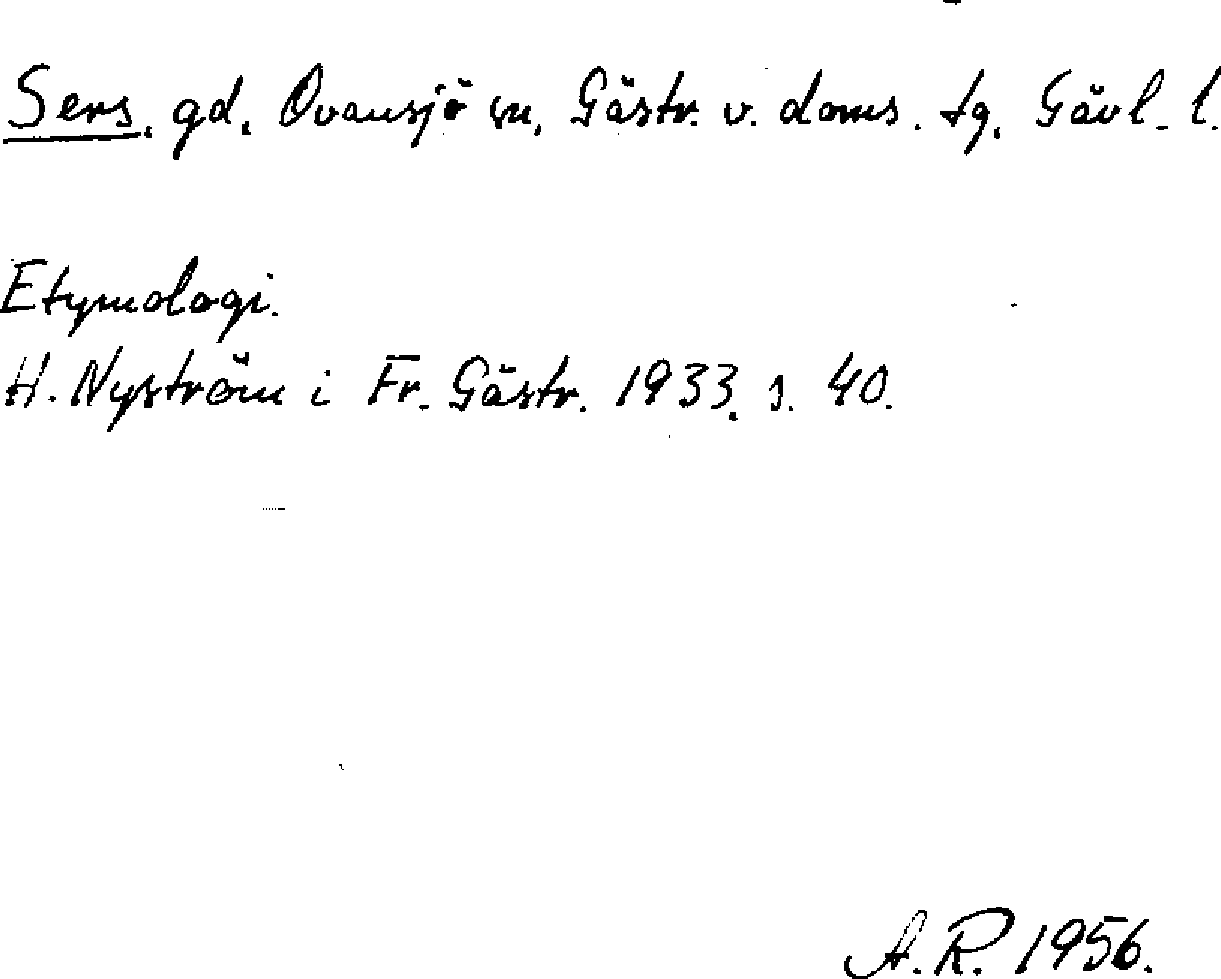 Sers. gd. Ovansjö sn, Gästr. v. doms. tg. Gävl. l.
Etymologi.
H. Nyström i Fr. Gästr. 1933. s. 40.
A. R. 1956.